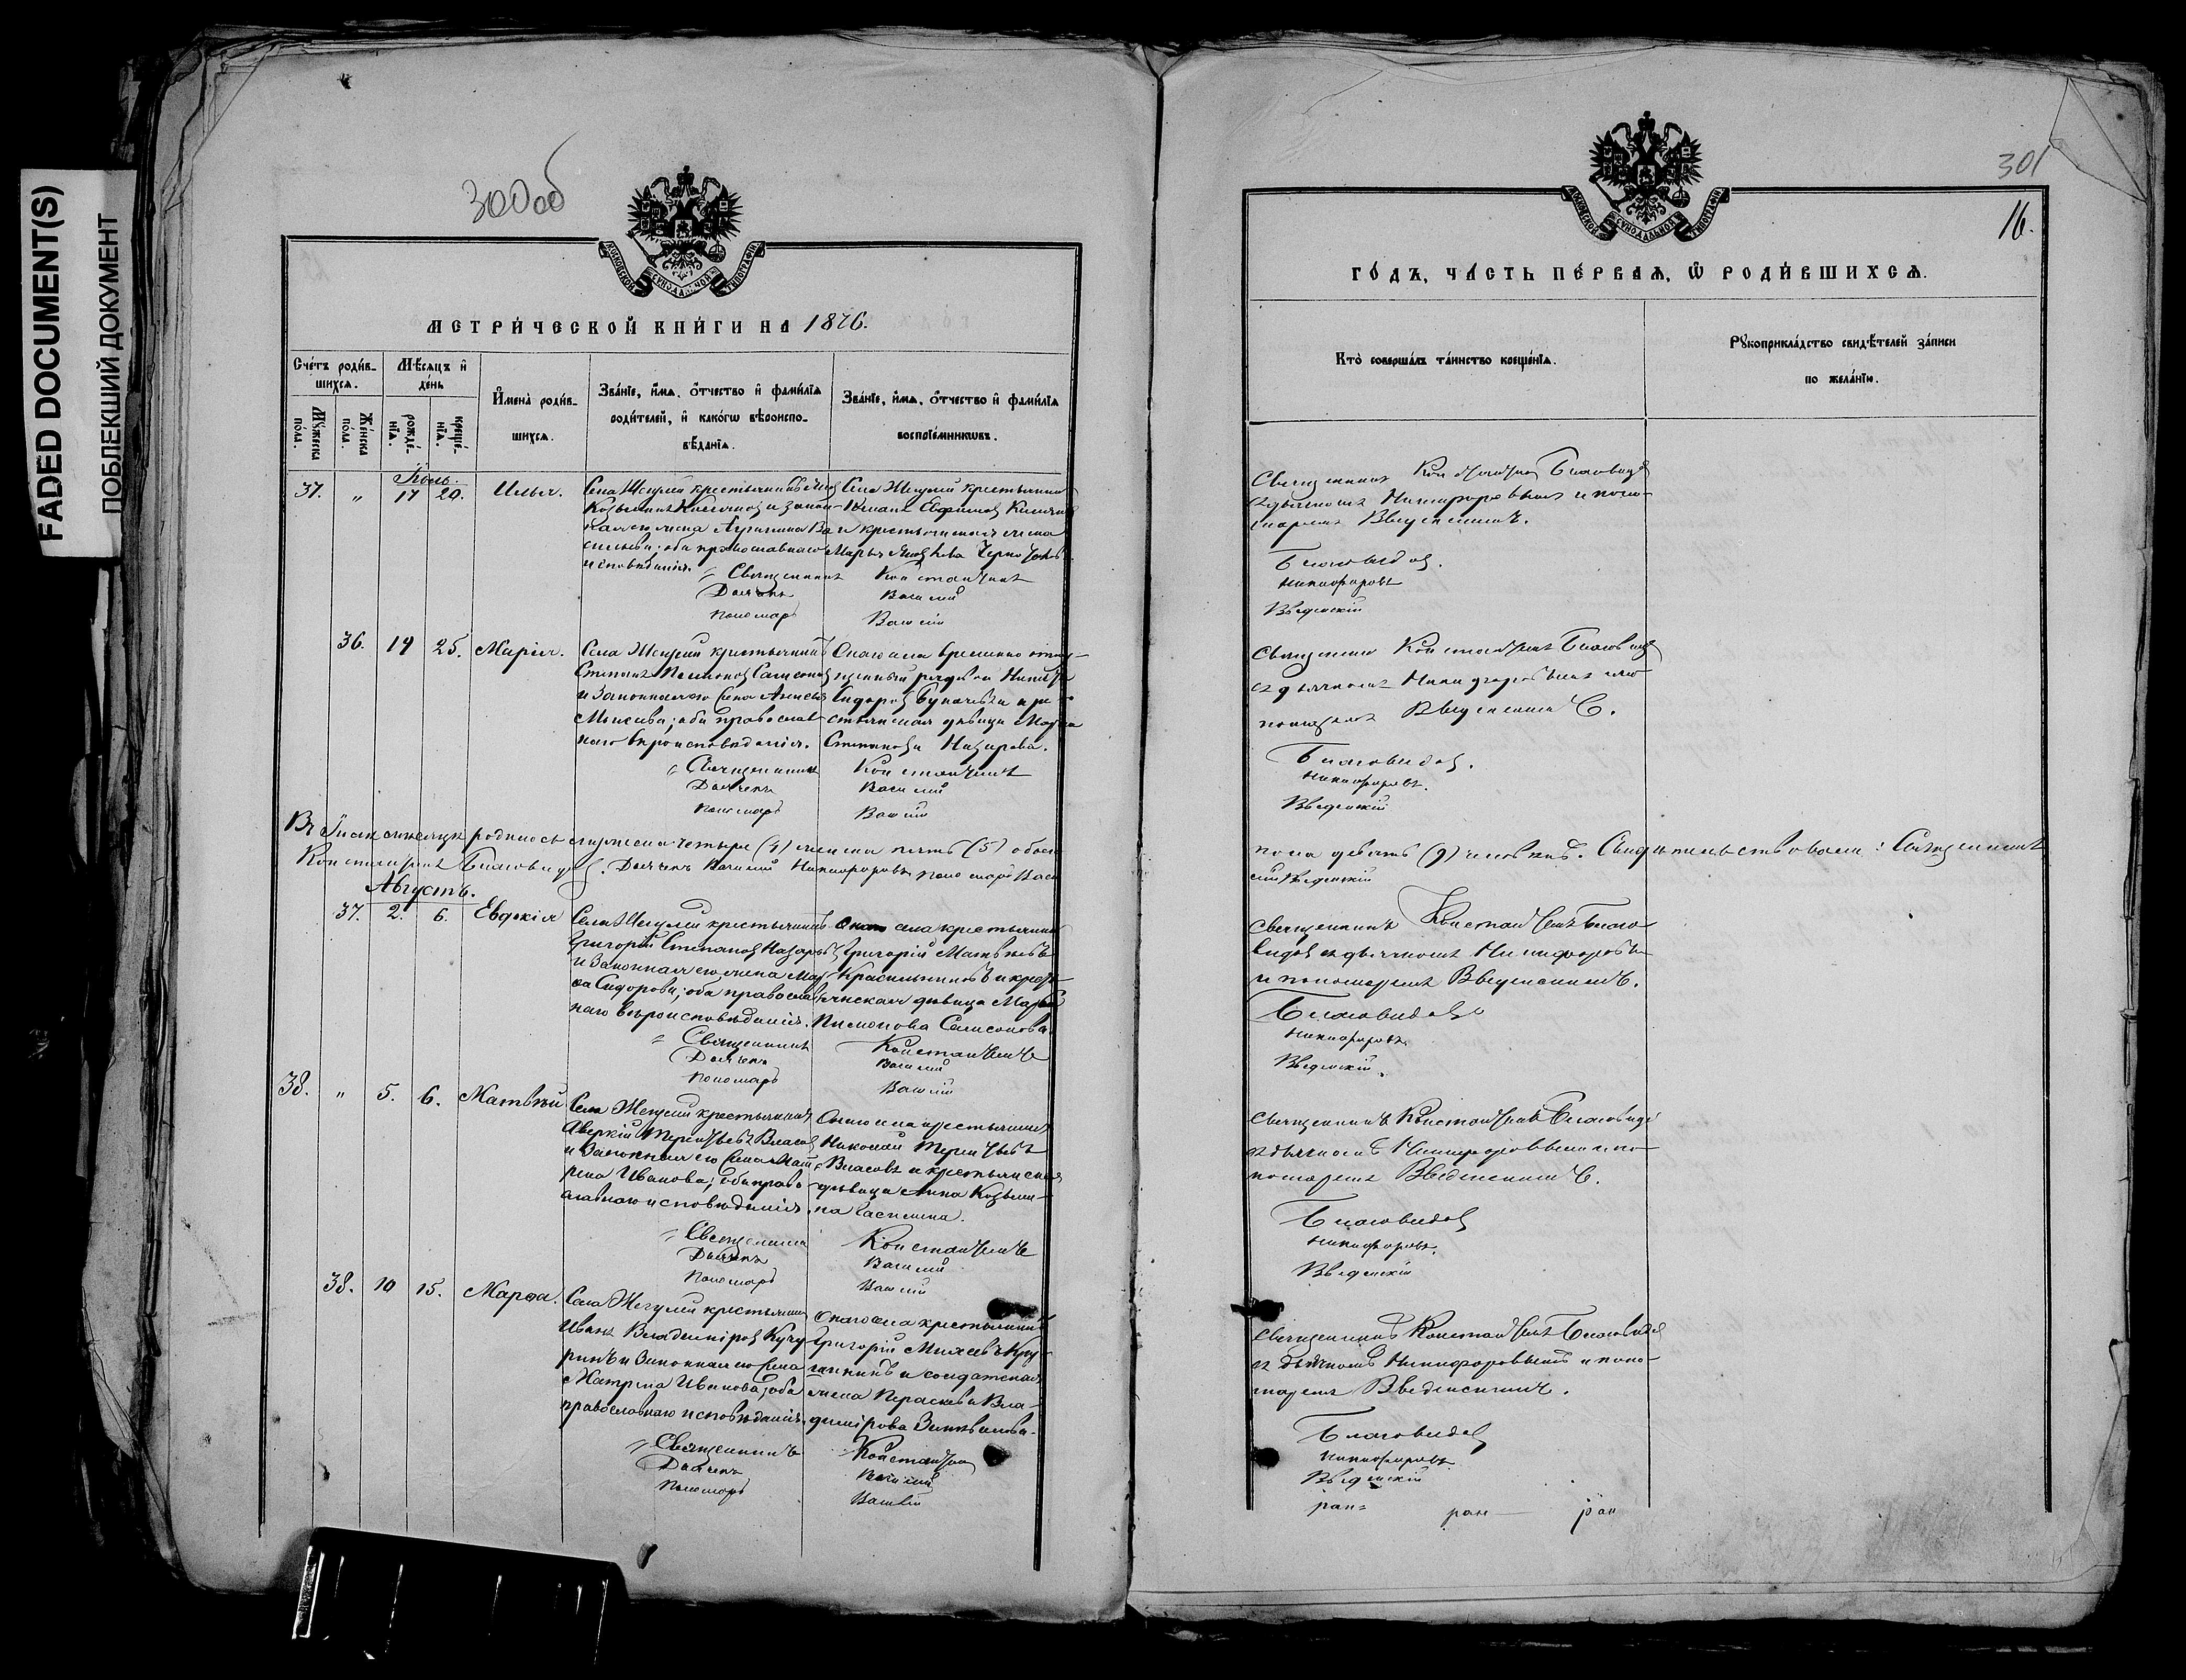 FADED DOCUMENT(S)
ПОБЛЕКШИЙ ДОКУМЕНТ
300 об
301
16.
МОСКОВСКОЙ СУНОДАЛЬНОЙ ТИПОГРАФІИ
МЕТРИ́ЧЕСКОЙ КНИ́ГИ НА 1876.
Сче́тъ роди́в-
шихся.
Мѣ́сяцъ и҆
де́нь
Му́жеска по́ла.
Же́нска по́ла.
рожде́-
нїѧ.
креще́-
нїѧ.
И҆мена̀ роди́в-
шихсѧ.
Зва́нїе, и҆́мѧ, ѻ҆́тчество и҆ фами́лїѧ
роди́телей, и҆ како́гѡ вѣроиспо-
вѣ́данїѧ.
Зва́нїе, и҆́мѧ, ѻ҆́тчество и҆ фами́лїѧ
воспрїе́мникѡвъ.
Іюль.
37. " 17 20. Илья.
Села Жегули крестьянинъ
Козьминъ и закон-
ная его жена Агрипина Ва-
сильева; оба православнаго
исповѣданія.
Села Жегули крестьянинъ
Евфимовъ
и крестьянская жена
Марья Яковлева
Священникъ Константинъ
Дьячекъ Василій
Пономарь Василій
36. 19 25. Марія.
Села Жегули крестьянинъ
Степанъ Пимоновъ Самсоновъ
и законная его жена Анисья
Моисеева; оба православ-
наго вѣроисповѣданія.
Онаго села временно отпу-
щенный рядовой Никита
Сидоровъ и кре-
стьянская дѣвица Марѳа
Степанова Назарова.
Священникъ Константинъ
Дьячекъ Василій
Пономарь Василій
Въ Іюлѣ мѣсяцѣ родилось мужеска четыре (4) женска пять (5) обоего
Константинъ Благовидовъ. Дьячекъ Василій Никифоровъ пономарь Васи
Августъ.
37. 2. 6. Евдокія
Села Жегули крестьянинъ
Григорій Степановъ Назаровъ
и законная его жена Мар-
ѳа Сидорова; оба православ-
наго вѣроисповѣданія.
Онаго села крестьянинъ
Григорій Матвѣевъ
Красильниковъ и кресть-
янская дѣвица Марья
Пимонова Самсонова.
Священникъ Константинъ
Дьячекъ Василій
Пономарь Василій
38. " 5. 6. Матвѣй
Села Жегули крестьянинъ
Аверкій Терентьевъ Власовъ
и законная его жена Мат-
рена Иванова; оба право-
славнаго исповѣданія.
Онаго села крестьянинъ
Николай Терентьевъ
Власовъ и крестьянская
дѣвица Анна Козьми-
на
Священникъ Константинъ
Дьячекъ Василій
Пономарь Василій
38. 10 15. Марѳа.
Села Жегули крестьянинъ
Иванъ Владиміровъ Кучу-
ринъ и законная его жена
Матрена Иванова; оба
православнаго исповѣданія.
Онаго села крестьянинъ
Григорій
и солдатская
жена Параскева Вла-
димірова
Священникъ Константинъ
Дьячекъ Василій
Пономарь Василій
МОСКОВСКОЙ СУНОДАЛЬНОЙ ТИПОГРАФІИ
ГО́ДЪ, ЧА́СТЬ ПЕ́РВАЯ, Ѡ҆ РОДИ́ВШИХСЯ.
Кто̀ соверша́лъ та́инство креще́нїѧ.
Рꙋкоприкла́дство свидѣ́телей за́писи
по жела́нїю.
Священникъ Константинъ Благовидовъ
съ дьячкомъ Никифоровымъ и поно-
маремъ Введенскимъ.
Благовидовъ.
Никифоровъ
Введенскій
Священникъ Константинъ Благовидовъ
съ дьячкомъ Никифоровымъ и
пономаремъ Введенскимъ.
Благовидовъ.
Никифоровъ.
Введенскій
пола девять (9) человѣкъ. Свидѣтельствовали: Священникъ
лій Введенскій
Священникъ Константинъ Благо-
видовъ съ дьячкомъ Никифоровымъ
и пономаремъ Введенскимъ.
Благовидовъ
Никифоровъ.
Введенскій.
Священникъ Константинъ Благовидовъ
съ дьячкомъ Никифоровымъ и по-
номаремъ Введенскимъ.
Благовидовъ
Никифоровъ.
Введенскій
Священникъ Константинъ Благовидовъ
съ дьячкомъ Никифоровымъ и поно-
маремъ Введенскимъ.
Благовидовъ
Никифоровъ.
Введенскій
ран- ран- ран